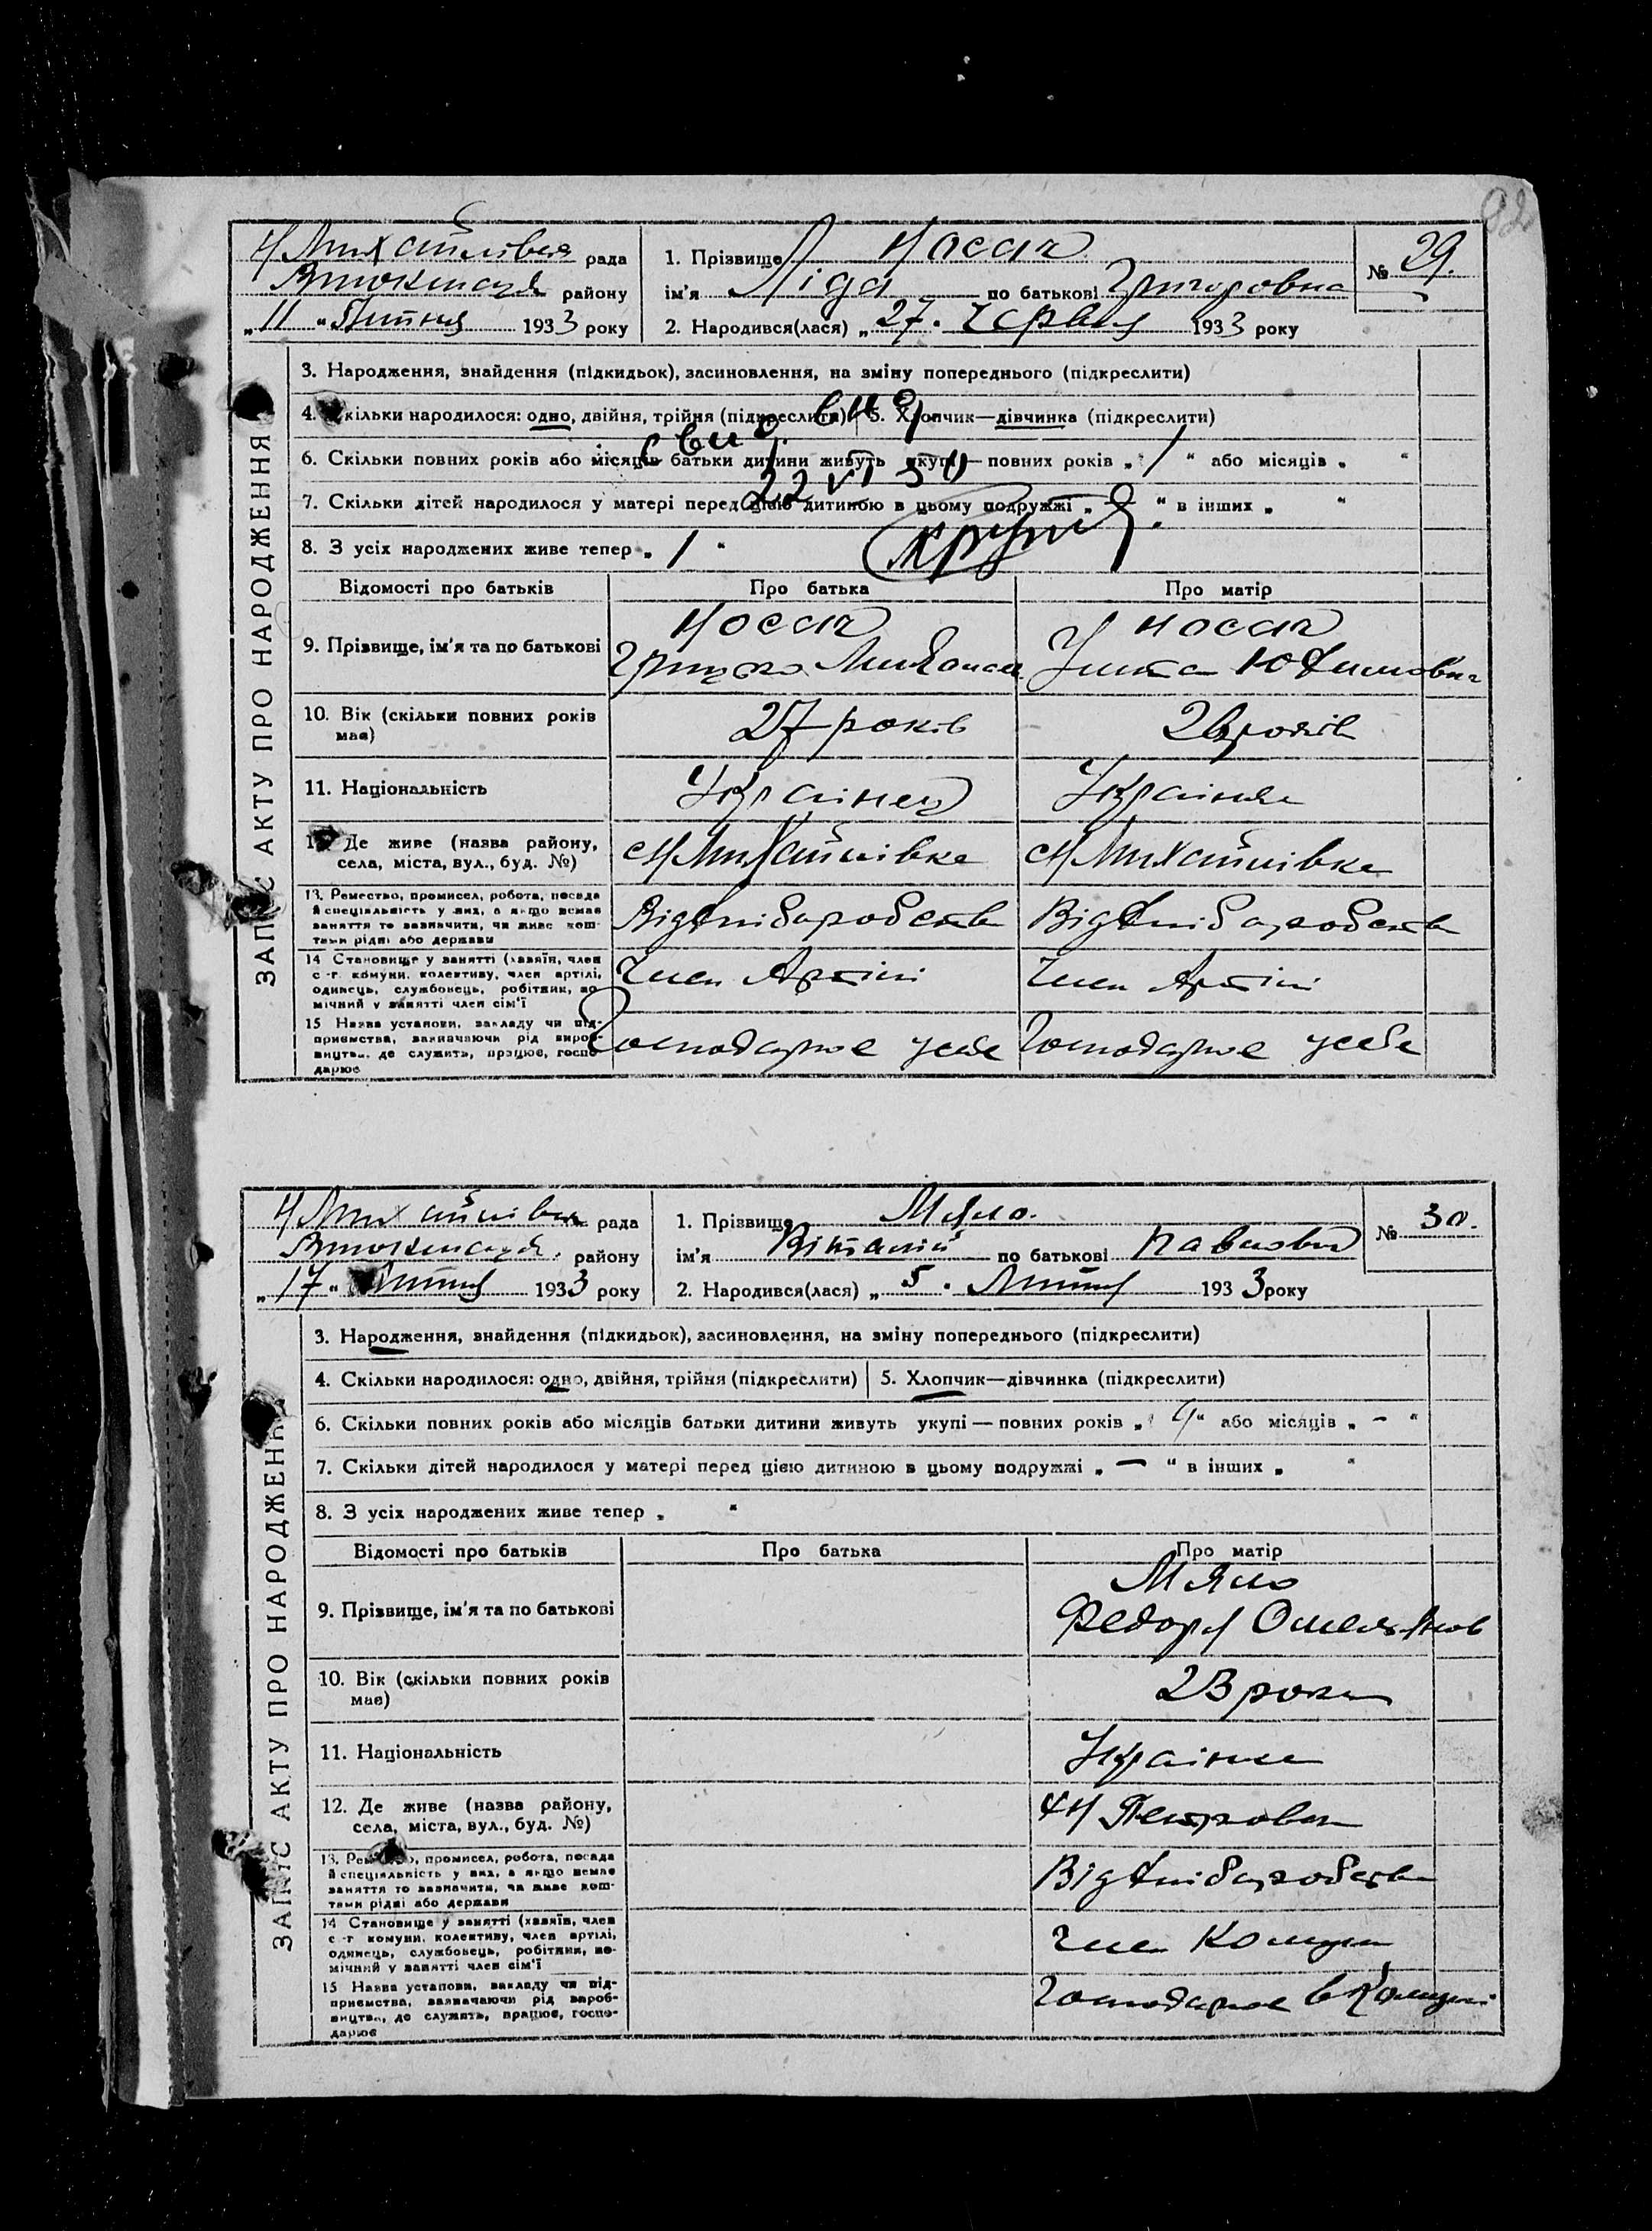 92
Н Михайлівка рада
району
„11“ Липня 1933 року
1. Прізвище Носач
ім'я Ліда по батькові Григоровна
2. Народився(лася) „27“ Червня 1933 року
№ 29.
ЗАПИС АКТУ ПРО НАРОДЖЕННЯ
3. Народження, знайдення (підкидьок), засиновлення, на зміну попереднього (підкреслити)
4. Скільки народилося: одно, двійня, трійня (підкреслити) 5. Хлопчик—дівчинка (підкреслити)
6. Скільки повних років або місяців батьки дитини живуть укупі — повних років „1“ або місяців „ “
7. Скільки дітей народилося у матері перед цією дитиною в цьому подружжі „—“ в інших „ “
22 VI
8. З усіх народжених живе тепер „1“
Відомості про батьків Про батька Про матір
9. Прізвище, ім'я та по батькові Носач Носач
Грицько Юхимовна
10. Вік (скільки повних років має) 27 років років
11. Національність Українец Українка
12. Де живе (назва району, села, міста, вул., буд. №) с Н Михайлівка с Н Михайлівка
13. Ремество, промисел, робота, посада
й спеціяльність у них, а якщо немає
заняття то зазначити, чи живе кош-
тами рідні або держави
Від хліборобства Від хліборобства
14 Становище у занятті (хазяїн, член
с.-г. комуни, колективу, член артілі,
одинець, службовець, робітник, по-
мічний у занятті член сім'ї
Член Артілі Член Артілі
15 Назва установи, закладу чи під-
приємства, зазначаючи рід вироб-
ництва, де служить, працює, госпо-
дарює
Господарює у себе Господарює у себе
Н Михайлівка рада
району
„17“ Липня 1933 року
1. Прізвище Мяло.
ім'я Віталій по батькові Павлович
2. Народився(лася) „5“ Липня 1933 року
№ 30.
ЗАПИС АКТУ ПРО НАРОДЖЕННЯ
3. Народження, знайдення (підкидьок), засиновлення, на зміну попереднього (підкреслити)
4. Скільки народилося: одно, двійня, трійня (підкреслити) 5. Хлопчик—дівчинка (підкреслити)
6. Скільки повних років або місяців батьки дитини живуть укупі — повних років „ “ або місяців „-“
7. Скільки дітей народилося у матері перед цією дитиною в цьому подружжі „—“ в інших „ “
8. З усіх народжених живе тепер „ “
Відомості про батьків Про батька Про матір
9. Прізвище, ім'я та по батькові Мяло
Федора Омелянов
10. Вік (скільки повних років має) 23 роки
11. Національність Українка
12. Де живе (назва району, села, міста, вул., буд. №) Петровка
13. Ремество, промисел, робота, посада
й спеціяльність у них, а якщо немає
заняття то зазначити, чи живе кош-
тами рідні або держави
Від хліборобства
14 Становище у занятті (хазяїн, член
с.-г. комуни, колективу, член артілі,
одинець, службовець, робітник, по-
мічний у занятті член сім'ї
Член Комуни
15 Назва установи, закладу чи під-
приємства, зазначаючи рід вироб-
ництва, де служить, працює, госпо-
дарює
Господарює в Комуні